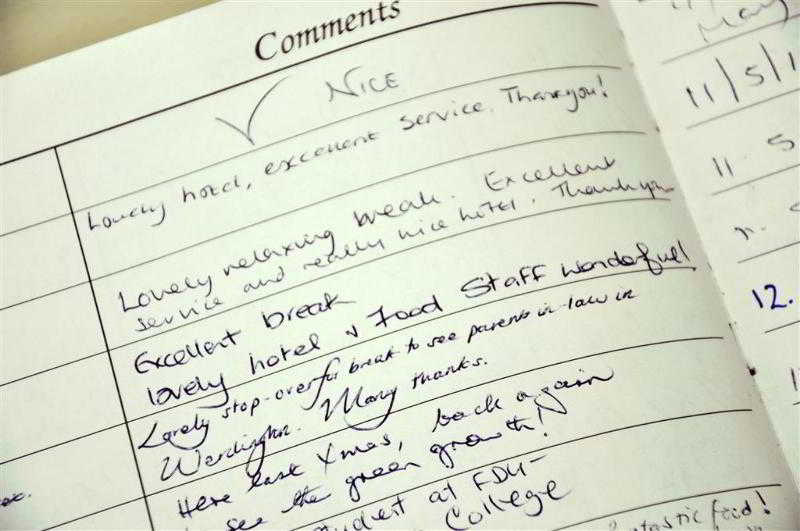 Comments
NICE
Lovely hotel, excellent service. Thankyou!
Lovely relaxing break. Excellent
service and really nice hotel. Thankyou
Excellent break
lovely hotel & Food Staff wonderfull
Lovely stop-over for break to see parents-in-law in
Wardington. Many thanks.
Here last Xmas, back again
see the green growth!
student at FDU-
College
fantastic food!
May
11/5/1
11 5
12.